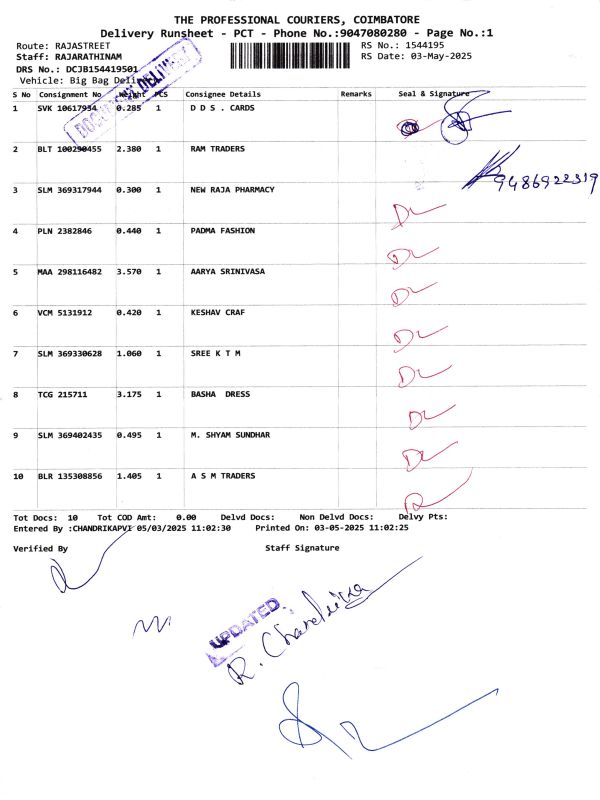 THE PROFESSIONAL COURIERS, COIMBATORE
Delivery Runsheet - PCT - Phone No.:9047080280 - Page No.:1
Route: RAJASTREET RS No.: 1544195
Staff: RAJARATHINAM RS Date: 03-May-2025
DRS No.: DCJB154419501
Vehicle: Big Bag Deli
DOCUMENT DELIVERY
S No Consignment No Weight PCS Consignee Details Remarks Seal & Signature
1 SVK 10617954 0.285 1 D D S . CARDS
2 BLT 100290455 2.380 1 RAM TRADERS
9486922319
3 SLM 369317944 0.300 1 NEW RAJA PHARMACY
DL
4 PLN 2382846 0.440 1 PADMA FASHION
DL
5 MAA 298116482 3.570 1 AARYA SRINIVASA
DL
6 VCM 5131912 0.420 1 KESHAV CRAF
DL
7 SLM 369330628 1.060 1 SREE K T M
DL
8 TCG 215711 3.175 1 BASHA DRESS
DL
9 SLM 369402435 0.495 1 M. SHYAM SUNDHAR
DL
10 BLR 135308856 1.405 1 A S M TRADERS
Tot Docs: 10 Tot COD Amt: 0.00 Delvd Docs: Non Delvd Docs: Delvy Pts:
Entered By :CHANDRIKAPVI 05/03/2025 11:02:30 Printed On: 03-05-2025 11:02:25
Verified By Staff Signature
UPDATED
R. Chandrika